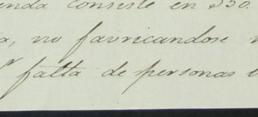 enda consiste en $50.
a, no favricandose
falta de personas